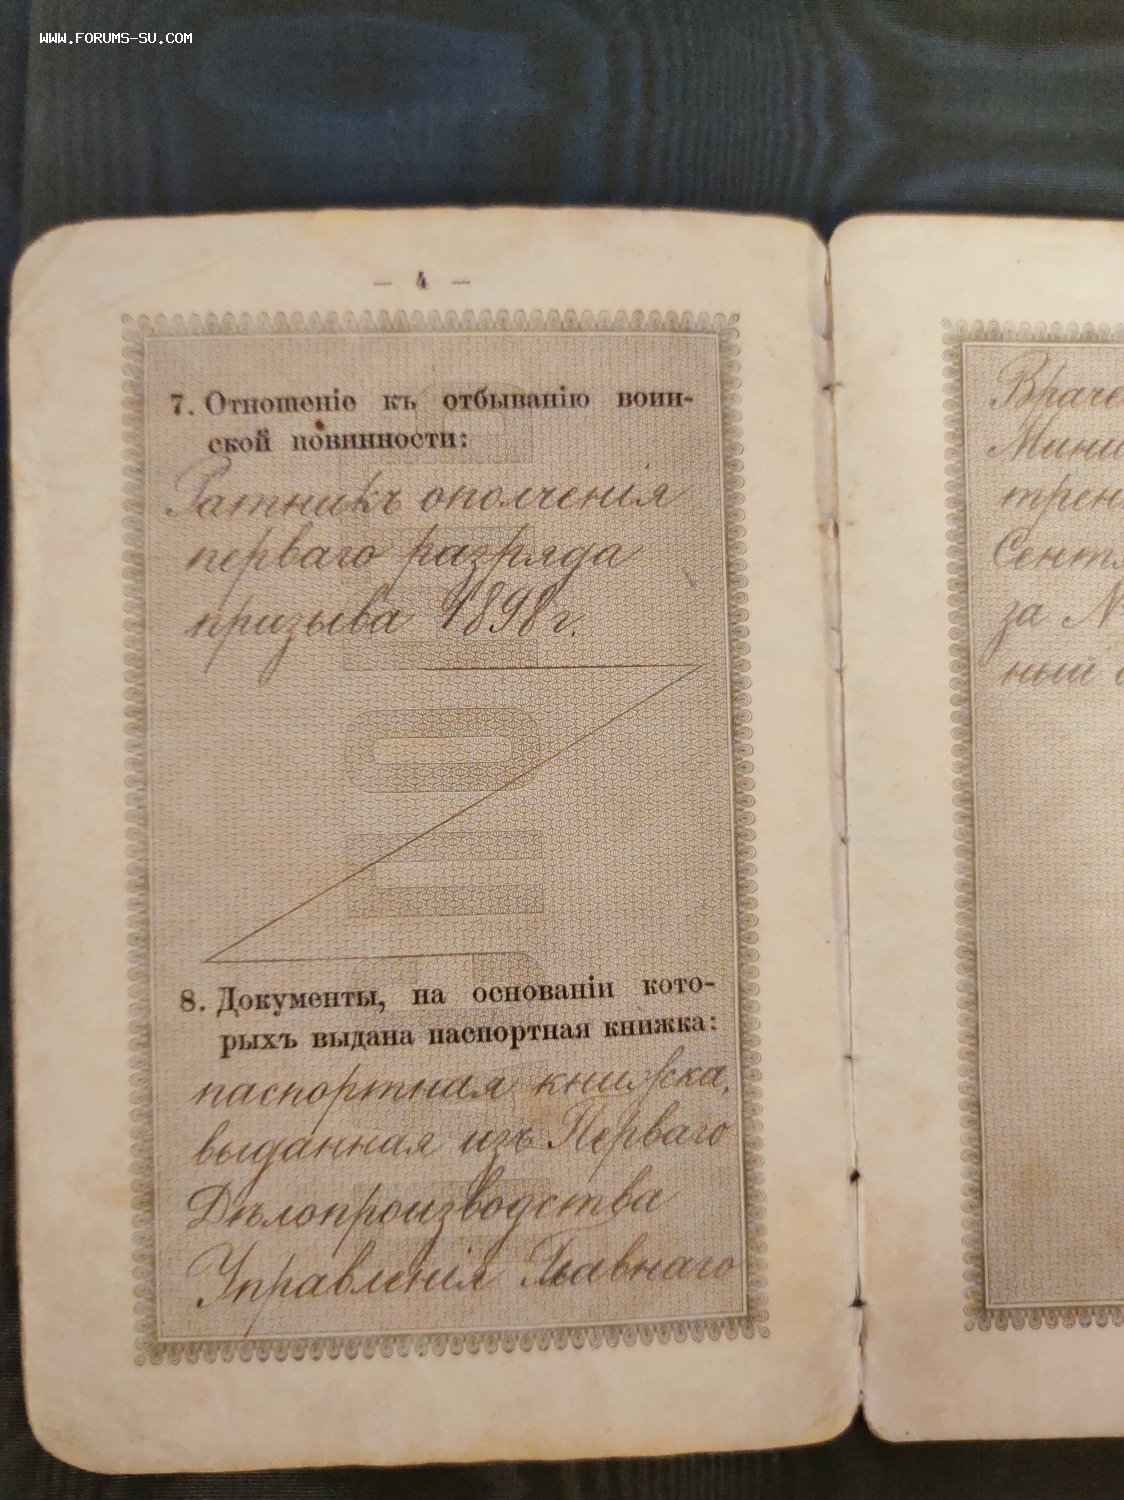 WWW.FORUMS-SU.COM
– 4 –
7. Отношеніе къ отбыванію воин-
ской повинности:
Ратникъ ополченія
перваго разряда
призыва 1898 г.
8. Документы, на основаніи кото-
рыхъ выдана паспортная книжка:
паспортная книжка,
выданная изъ Перваго
Дѣлопроизводства
Управленія Главнаго
Враче
Мини
трен
Сентя
за №
ный